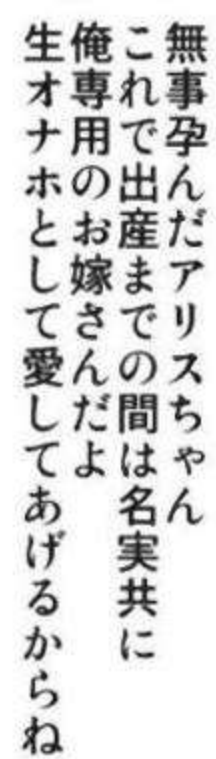 無事孕んだアリスちゃん
これで出産までの間は名実共に
俺専用のお嫁さんだよ
生オナホとして愛してあげるからね